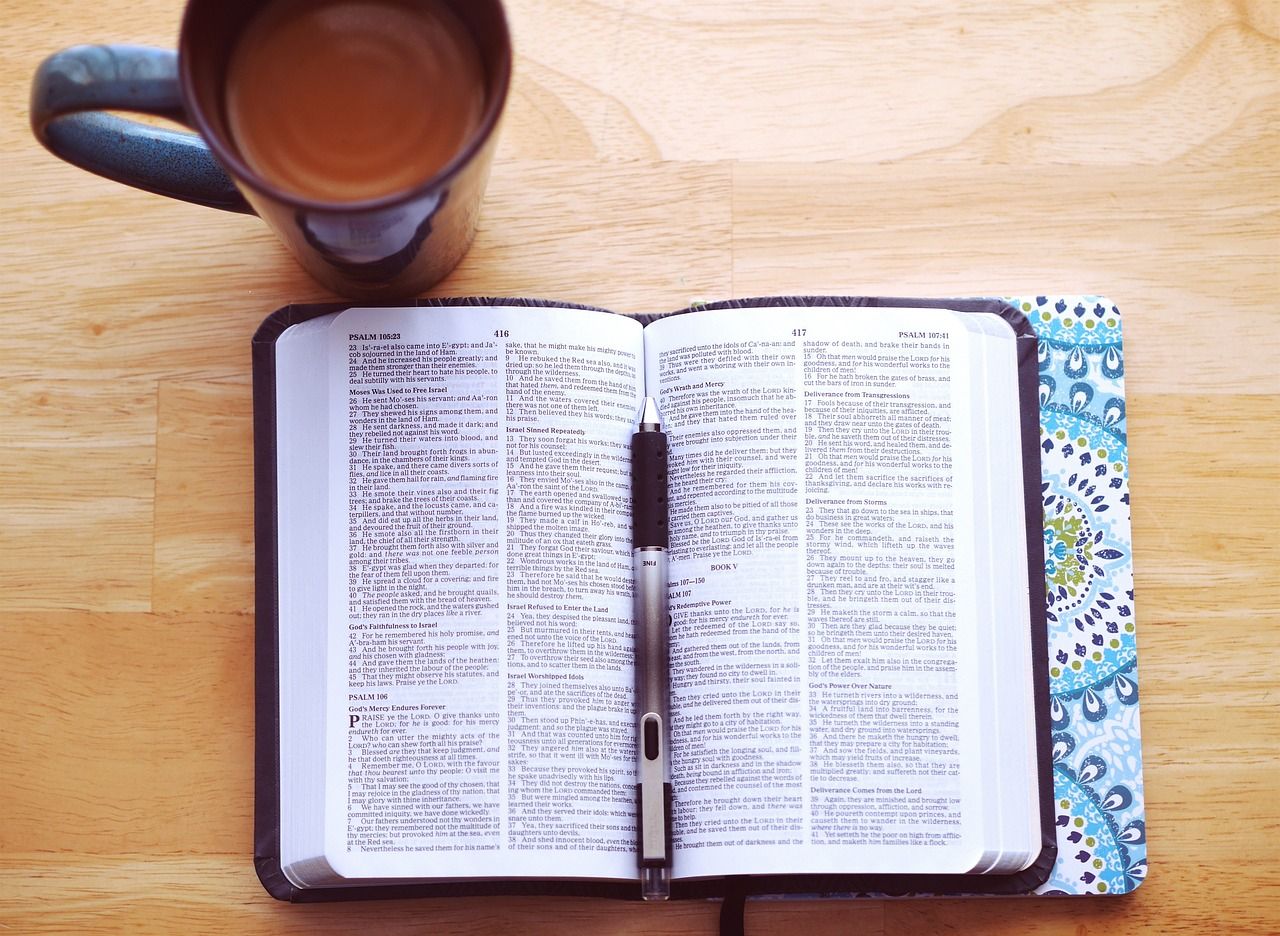 PSALM 105:23
416
23 Is'-ra-el also came into E'-gypt; and Ja'-
cob sojourned in the land of Ham.
24 And he increased his people greatly; and
made them stronger than their enemies.
25 He turned their heart to hate his people, to
deal subtilly with his servants.
Moses Was Used to Free Israel
26 He sent Mo'-ses his servant; and Aa'-ron
whom he had chosen.
27 They shewed his signs among them, and
wonders in the land of Ham.
28 He sent darkness, and made it dark; and
they rebelled not against his word.
29 He turned their waters into blood, and
slew their fish.
30 Their land brought forth frogs in abun-
dance, in the chambers of their kings.
31 He spake, and there came divers sorts of
flies, and lice in all their coasts.
32 He gave them hail for rain, and flaming fire
in their land.
33 He smote their vines also and their fig
trees; and brake the trees of their coasts.
34 He spake, and the locusts came, and ca-
terpillers, and that without number,
35 And did eat up all the herbs in their land,
and devoured the fruit of their ground.
36 He smote also all the firstborn in their
land, the chief of all their strength.
37 He brought them forth also with silver and
gold: and there was not one feeble person
among their tribes.
38 E'-gypt was glad when they departed: for
the fear of them fell upon them.
39 He spread a cloud for a covering; and fire
to give light in the night.
40 The people asked, and he brought quails,
and satisfied them with the bread of heaven.
41 He opened the rock, and the waters gushed
out; they ran in the dry places like a river.
God's Faithfulness to Israel
42 For he remembered his holy promise, and
A'-bra-ham his servant.
43 And he brought forth his people with joy,
and his chosen with gladness:
44 And gave them the lands of the heathen:
and they inherited the labour of the people;
45 That they might observe his statutes, and
keep his laws. Praise ye the LORD.
PSALM 106
God's Mercy Endures Forever
PRAISE ye the LORD. O give thanks unto
the LORD; for he is good: for his mercy
endureth for ever.
2 Who can utter the mighty acts of the
LORD? who can shew forth all his praise?
3 Blessed are they that keep judgment, and
he that doeth righteousness at all times.
4 Remember me, O LORD, with the favour
that thou bearest unto thy people: O visit me
with thy salvation;
5 That I may see the good of thy chosen, that
I may rejoice in the gladness of thy nation, that
I may glory with thine inheritance.
6 We have sinned with our fathers, we have
committed iniquity, we have done wickedly.
7 Our fathers understood not thy wonders in
E'-gypt; they remembered not the multitude of
thy mercies; but provoked him at the sea, even
at the Red sea.
8 Nevertheless he saved them for his name's
sake, that he might make his mighty power to
be known.
9 He rebuked the Red sea also, and it was
dried up: so he led them through the depths, as
through the wilderness.
10 And he saved them from the hand of him
that hated them, and redeemed them from the
hand of the enemy.
11 And the waters covered their enemies:
there was not one of them left.
12 Then believed they his words; they sang
his praise.
Israel Sinned Repeatedly
13 They soon forgat his works; they
not for his counsel:
14 But lusted exceedingly in the wilderness,
and tempted God in the desert.
15 And he gave them their request; but
leanness into their soul.
16 They envied Mo'-ses also in the camp,
Aa'-ron the saint of the LORD.
17 The earth opened and swallowed up
than and covered the company of
18 And a fire was kindled in their
the flame burned up the wicked.
19 They made a calf in Ho'-reb, and
shipped the molten image.
20 Thus they changed their glory into the
militude of an ox that eateth grass.
21 They forgat God their saviour, which
done great things in E'-gypt;
22 Wondrous works in the land of Ham,
terrible things by the Red sea.
23 Therefore he said that he would
them, had not Mo'-ses his chosen stood
him in the breach, to turn away his wrath,
he should destroy them.
Israel Refused to Enter the Land
24 Yea, they despised the pleasant land,
believed not his word:
25 But murmured in their tents, and
ened not unto the voice of the LORD.
26 Therefore he lifted up his hand
them, to overthrow them in the wilderness:
27 To overthrow their seed also among the
tions, and to scatter them in the lands.
Israel Worshipped Idols
28 They joined themselves also unto
pe'-or, and ate the sacrifices of the dead.
29 Thus they provoked him to anger
their inventions: and the plague brake in
them.
30 Then stood up Phin'-e-has, and
judgment: and so the plague was stayed.
31 And that was counted unto him for
teousness unto all generations for evermore.
32 They angered him also at the waters
strife, so that it went ill with Mo'-ses for
sakes:
33 Because they provoked his spirit, so
he spake unadvisedly with his lips.
34 They did not destroy the nations,
ing whom the LORD commanded them:
35 But were mingled among the heathen,
learned their works.
36 And they served their idols: which
snare unto them.
37 Yea, they sacrificed their sons and
daughters unto devils,
38 And shed innocent blood, even the
of their sons and of their daughters,
417
PSALM 107:41
they sacrificed unto the idols of Ca'-na-an: and
the land was polluted with blood.
39 Thus were they defiled with their own
works, and went a whoring with their own in-
ventions.
God's Wrath and Mercy
40 Therefore was the wrath of the LORD kin-
dled against his people, insomuch that he ab-
horred his own inheritance.
And he gave them into the hand of the hea-
and they that hated them ruled over
Their enemies also oppressed them, and
were brought into subjection under their
Many times did he deliver them; but they
him with their counsel, and were
low for their iniquity.
Nevertheless he regarded their affliction,
he heard their cry:
And he remembered for them his cov-
and repented according to the multitude
mercies.
He made them also to be pitied of all those
carried them captives.
Save us, O LORD our God, and gather us
among the heathen, to give thanks unto
holy name, and to triumph in thy praise.
Blessed be the LORD God of Is'-ra-el from
to everlasting: and let all the people
A'-men. Praise ye the LORD.
BOOK V
Psalms 107—150
PSALM 107
God's Redemptive Power
O GIVE thanks unto the LORD, for he is
good: for his mercy endureth for ever.
Let the redeemed of the LORD say so,
he hath redeemed from the hand of the
And gathered them out of the lands, from
east, and from the west, from the north, and
the south.
They wandered in the wilderness in a soli-
way; they found no city to dwell in.
Hungry and thirsty, their soul fainted in
Then they cried unto the LORD in their
and he delivered them out of their dis-
And he led them forth by the right way,
they might go to a city of habitation.
Oh that men would praise the LORD for his
goodness, and for his wonderful works to the
children of men!
For he satisfieth the longing soul, and fill-
the hungry soul with goodness.
Such as sit in darkness and in the shadow
death, being bound in affliction and iron;
Because they rebelled against the words of
and contemned the counsel of the most
Therefore he brought down their heart
labour; they fell down, and there was
to help.
Then they cried unto the LORD in their
and he saved them out of their dis-
He brought them out of darkness and the
shadow of death, and brake their bands in
sunder.
15 Oh that men would praise the LORD for his
goodness, and for his wonderful works to the
children of men!
16 For he hath broken the gates of brass, and
cut the bars of iron in sunder.
Deliverance from Transgressions
17 Fools because of their transgression, and
because of their iniquities, are afflicted.
18 Their soul abhorreth all manner of meat;
and they draw near unto the gates of death.
19 Then they cry unto the LORD in their trou-
ble, and he saveth them out of their distresses.
20 He sent his word, and healed them, and de-
livered them from their destructions.
21 Oh that men would praise the LORD for his
goodness, and for his wonderful works to the
children of men!
22 And let them sacrifice the sacrifices of
thanksgiving, and declare his works with re-
joicing.
Deliverance from Storms
23 They that go down to the sea in ships, that
do business in great waters;
24 These see the works of the LORD, and his
wonders in the deep.
25 For he commandeth, and raiseth the
stormy wind, which lifteth up the waves
thereof.
26 They mount up to the heaven, they go
down again to the depths: their soul is melted
because of trouble.
27 They reel to and fro, and stagger like a
drunken man, and are at their wit's end.
28 Then they cry unto the LORD in their trou-
ble, and he bringeth them out of their dis-
tresses.
29 He maketh the storm a calm, so that the
waves thereof are still.
30 Then are they glad because they be quiet;
so he bringeth them unto their desired haven.
31 Oh that men would praise the LORD for his
goodness, and for his wonderful works to the
children of men!
32 Let them exalt him also in the congrega-
tion of the people, and praise him in the assem-
bly of the elders.
God's Power Over Nature
33 He turneth rivers into a wilderness, and
the watersprings into dry ground;
34 A fruitful land into barrenness, for the
wickedness of them that dwell therein.
35 He turneth the wilderness into a standing
water, and dry ground into watersprings.
36 And there he maketh the hungry to dwell,
that they may prepare a city for habitation;
37 And sow the fields, and plant vineyards,
which may yield fruits of increase.
38 He blesseth them also, so that they are
multiplied greatly; and suffereth not their cat-
tle to decrease.
Deliverance Comes from the Lord
39 Again, they are minished and brought low
through oppression, affliction, and sorrow.
40 He poureth contempt upon princes, and
causeth them to wander in the wilderness,
where there is no way.
41 Yet setteth he the poor on high from afflic-
tion, and maketh him families like a flock.
FINE